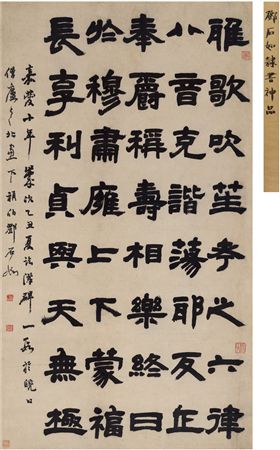 鄧石如隸書神品
雅歌吹笙考之六律
八音克諧蕩邪反正
奉爵稱壽相樂終日
於穆肅雍上下蒙福
長享利貞與天無極
嘉慶十年歲次乙丑夏臨漢碑一段於曉日
僊廬之北 下頑伯鄧石如